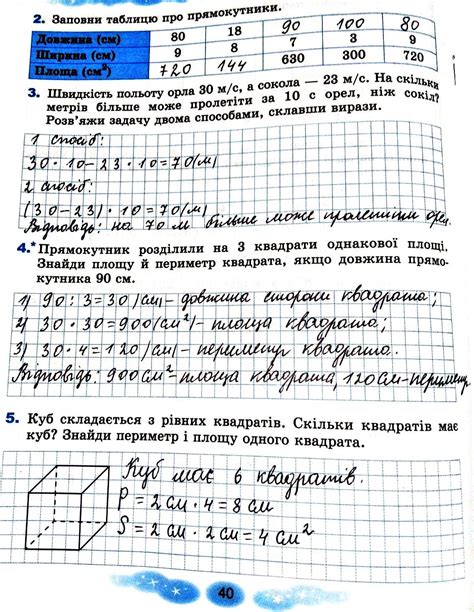 2. Заповни таблицю про прямокутники.
Довжина (см) 80 18 90 100 80
Ширина (см) 9 8 7 3 9
Площа (см²) 720 144 630 300 720
3. Швидкість польоту орла 30 м/с, а сокола — 23 м/с. На скільки
метрів більше може пролетіти за 10 с орел, ніж сокіл?
Розв'яжи задачу двома способами, склавши вирази.
1 спосіб:
30 · 10 – 23 · 10 = 70 (м)
2 спосіб:
(30 – 23) · 10 = 70 (м)
Відповідь: на 70 м більше може пролетіти орел.
4.* Прямокутник розділили на 3 квадрати однакової площі.
Знайди площу й периметр квадрата, якщо довжина прямо-
кутника 90 см.
1) 90 : 3 = 30 (см) – довжина сторони квадрата;
2) 30 · 30 = 900 (см²) – площа квадрата;
3) 30 · 4 = 120 (см) – периметр квадрата.
Відповідь: 900 см² – площа квадрата, 120 см – периметр
5. Куб складається з рівних квадратів. Скільки квадратів має
куб? Знайди периметр і площу одного квадрата.
Куб має 6 квадратів.
P = 2 см · 4 = 8 см
S = 2 см · 2 см = 4 см²
40